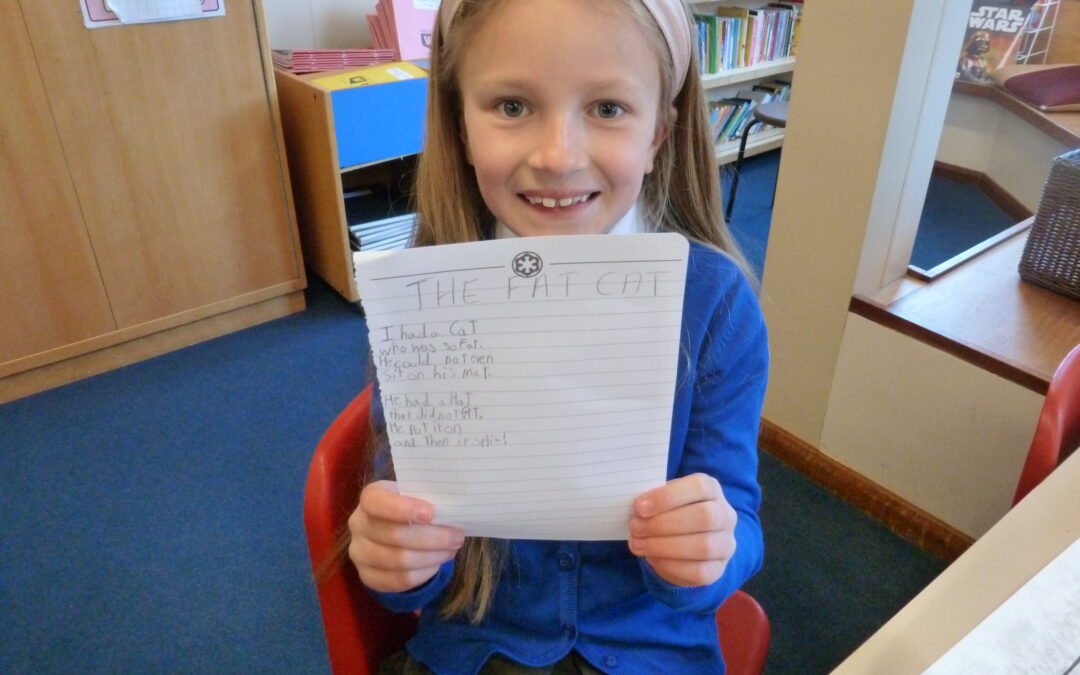 STAR
WARS
THE FAT CAT
I had a Cat
who was so Fat.
He could not even
sit on his Mat.
He had a Hat
that did not fit.
He put it on
and Then it split!